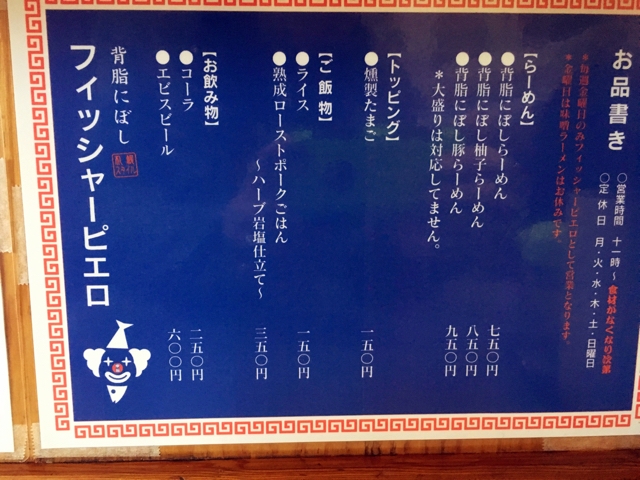 お品書き
〇営業時間 十一時～食材がなくなり次第
〇定休日 月・火・水・木・土・日曜日
＊毎週金曜日のみフィッシャーピエロとして営業となります。
＊金曜日は味噌ラーメンはお休みです。
【らーめん】
●背脂にぼしらーめん 七五〇円
●背脂にぼし柚子らーめん 八五〇円
●背脂にぼし豚らーめん 九五〇円
＊大盛りは対応してません。
【トッピング】
●燻製たまご 一五〇円
【ご飯物】
●ライス 一五〇円
●熟成ローストポークごはん
～ハーブ岩塩仕立て～ 三五〇円
【お飲み物】
●コーラ 二五〇円
●エビスビール 六〇〇円
背脂にぼし
フィッシャーピエロ